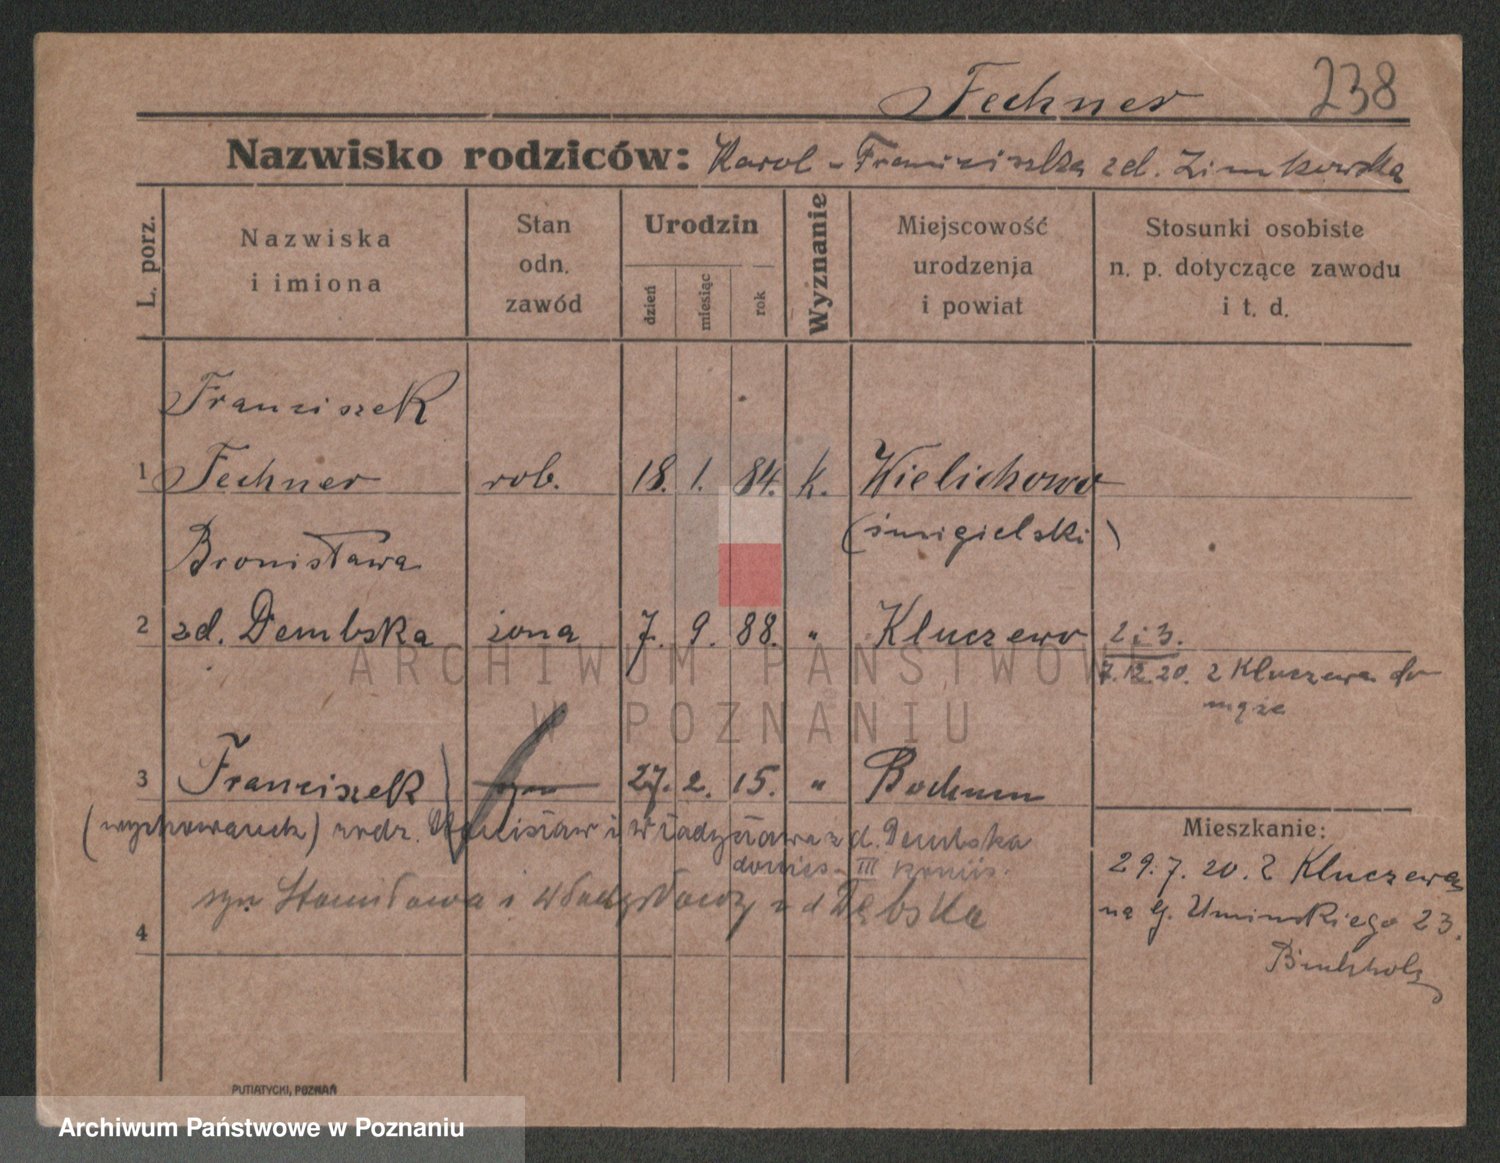 Fechner 238
Nazwisko rodziców: Karol - Franciszka zd. Zimkowska
L. porz.
Nazwiska
i imiona
Stan
odn.
zawód
Urodzin
dzień
miesiąc
rok
Wyżnanie
Miejscowość
urodzenja
i powiat
Stosunki osobiste
n. p. dotyczące zawodu
i t. d.
Franciszek
1 Fechner rob. 18. 1. 84. k. Wielichowo
(śmigielski)
Bronisława
2 zd. Dembska żona 7. 9. 88. " Kluczewo 2 i 3.
7.12.20. z Kluczewa do
męża
3 Franciszek syn 27. 2. 15. " Bochum
(wychowanek) rodz. Stanisław i Władysława zd. Dembska
donies. III komis.
syn Stanisława i Władysławy z d Dębska
4
Mieszkanie:
29.7.20. z Kluczewa
na G. Umińskiego 23.
PUTIATYCKI, POZNAŃ
ARCHIWUM PAŃSTWOWE
W POZNANIU
Archiwum Państwowe w Poznaniu